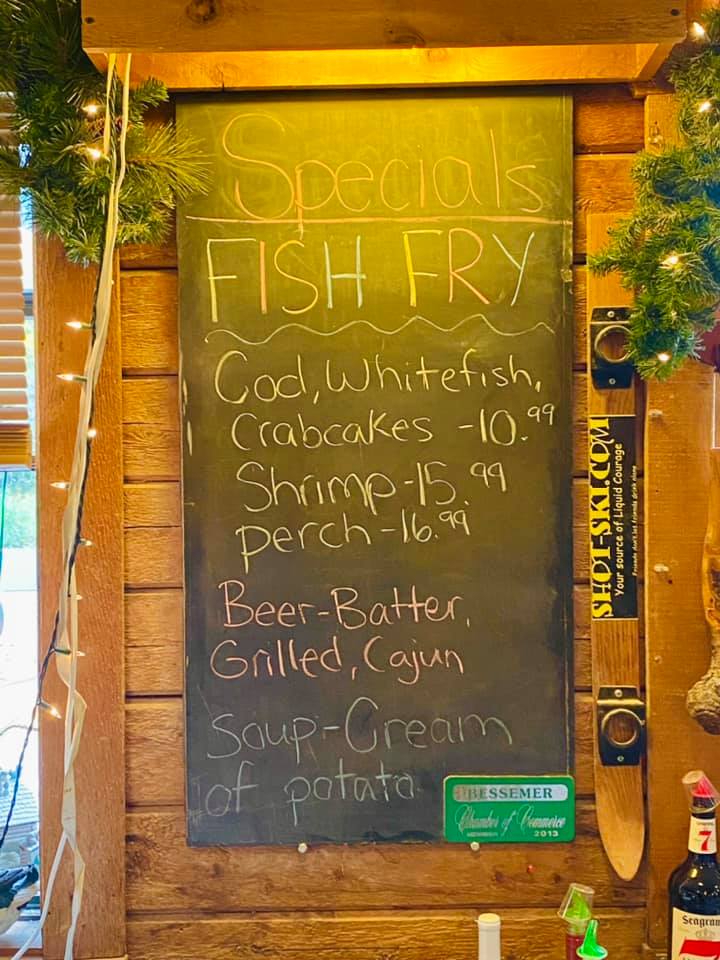 Specials
FISH FRY
Cod, Whitefish,
Crabcakes -10.99
Shrimp-15.99
perch-16.99
Beer-Batter,
Grilled, Cajun
Soup-Cream
of potato
BESSEMER
Chamber of Commerce
MEMBER 2013
SHOT-SKI.COM
Your source of Liquid Courage
Friends don't let friends drink alone
7
Seagram
7